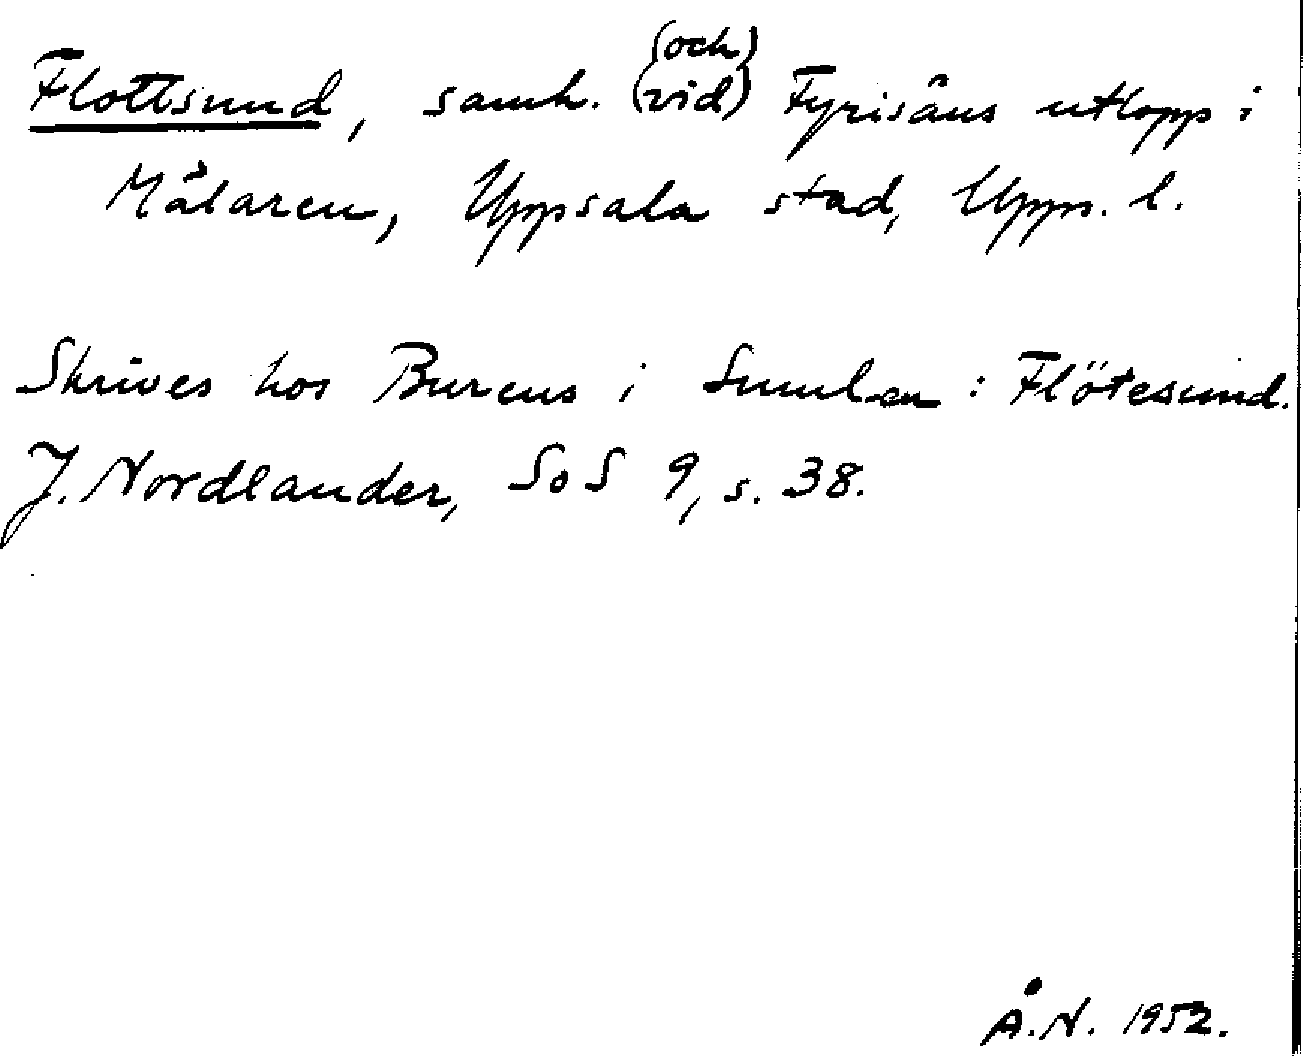 Flottsund, samh. (och) (vid) Fyrisåns utlopp i
Mälaren, Uppsala stad, Upps. l.
Skrives hos Bureus i Sumlen: Flötesund.
J. Nordlander, SoS 9, s. 38.
Å.N. 1952.